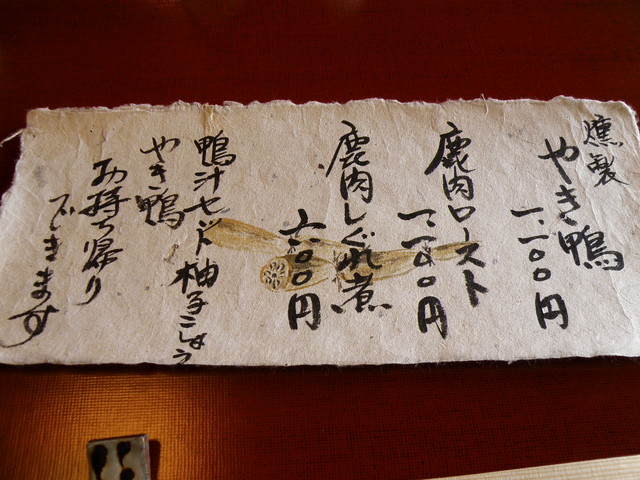 燻製
やき鴨
一、一〇〇円
鹿肉ロースト
一、一〇〇円
鹿肉しぐれ煮
六〇〇円
鴨汁セット 柚子こしょう
やき鴨
お持ち帰り
できます